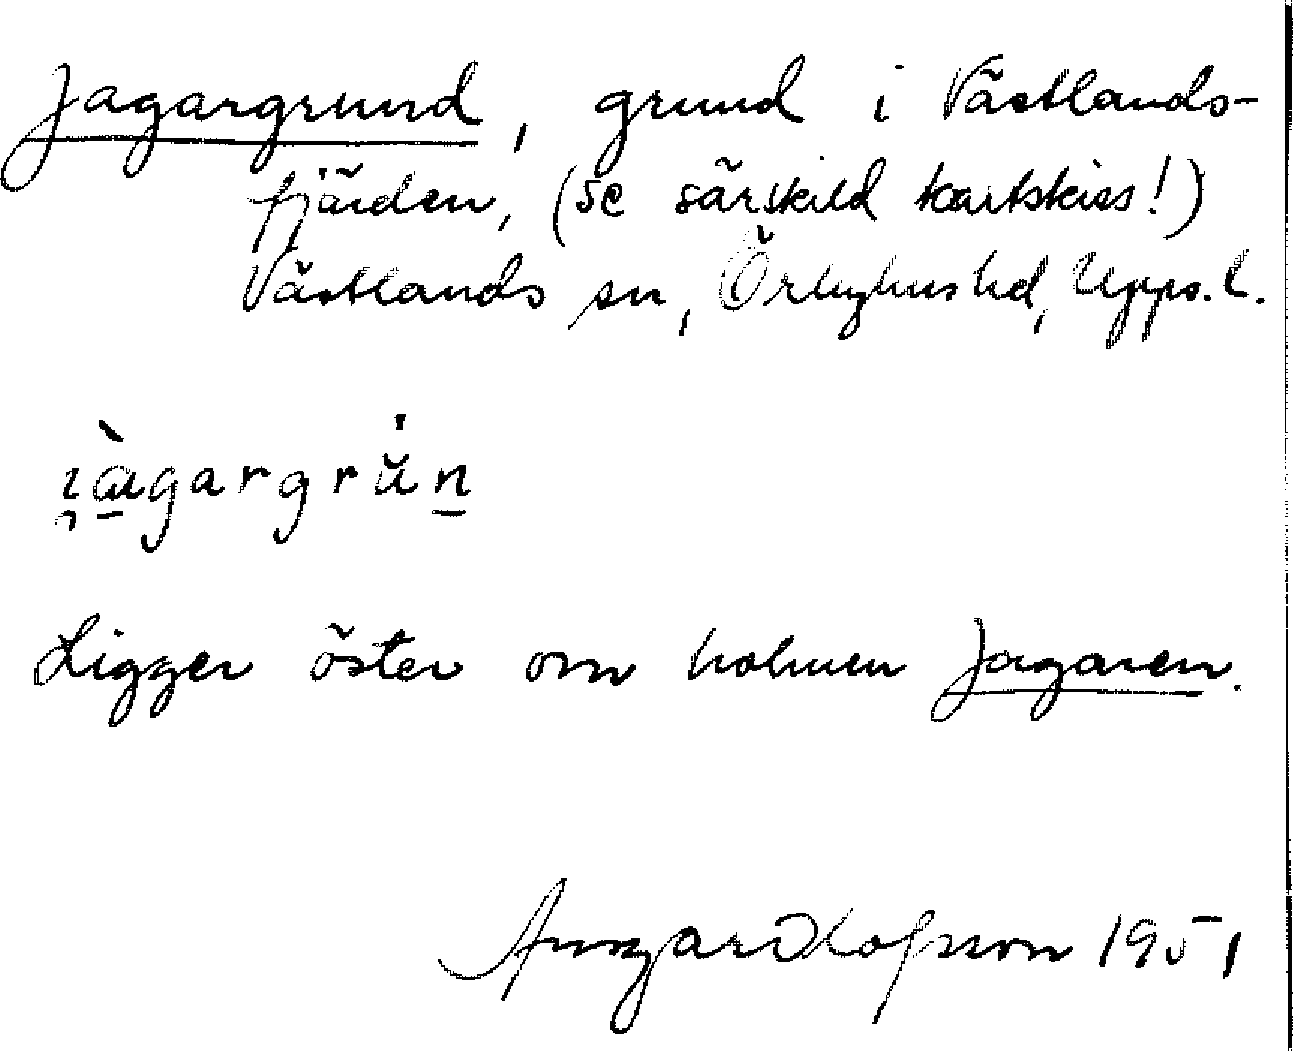 Jagargrund, grund i Västlands-
fjärden, (se särskild kartskiss!)
Västlands sn, Örbyhus hd, Upps. l.
i̯ɑ̱̀gargrŭ́n̲
Ligger öster om holmen Jagaren.
Ansgar Olofsson 1951